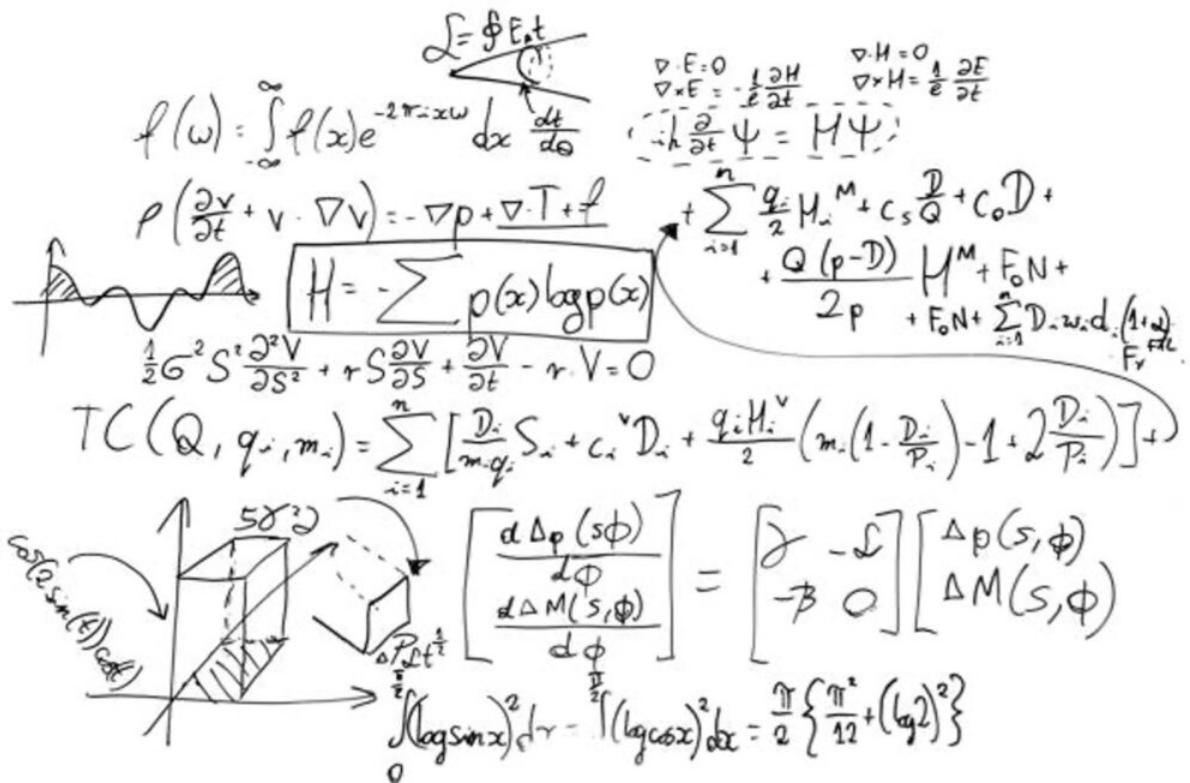 ℒ = ∮ E, t
∇·E = 0 ∇·H = 0
∇×E = -1/c ∂H/∂t ∇×H = 1/c ∂E/∂t
f(ω) = ∫_{-∞}^{∞} f(x)e^{-2πixω} dx dt/dθ
iħ ∂/∂t Ψ = HΨ
ρ(∂v/∂t + v · ∇v) = -∇p + ∇·T + f
+ Σ_{i=1}^{n} q_i/2 H_i^M + c_s D/Q + c_o D +
+ Q(p-D)/2p H^M + F_o N +
+ F_o N + Σ_{i=1}^{n} D_i w_i d_i
H = -Σ p(x) log p(x)
1/2 σ² S² ∂²V/∂S² + r S ∂V/∂S + ∂V/∂t - r · V = 0
TC(Q, q_i, m_i) = Σ_{i=1}^{n} [D_i/(m_i q_i) S_i + c_i^v D_i + q_i H_i^v/2 (m_i(1 - D_i/P_i) - 1 + 2 D_i/P_i)] +
[dΔp(sϕ)/dϕ ; dΔM(s,ϕ)/dϕ] = [γ -ℒ ; -β 0] [Δp(s,ϕ) ; ΔM(s,ϕ)]
∫_0^{π/2} (log sin x)² dx = ∫^{π/2} (log cos x)² dx = π/2 {π²/12 + (log 2)²}